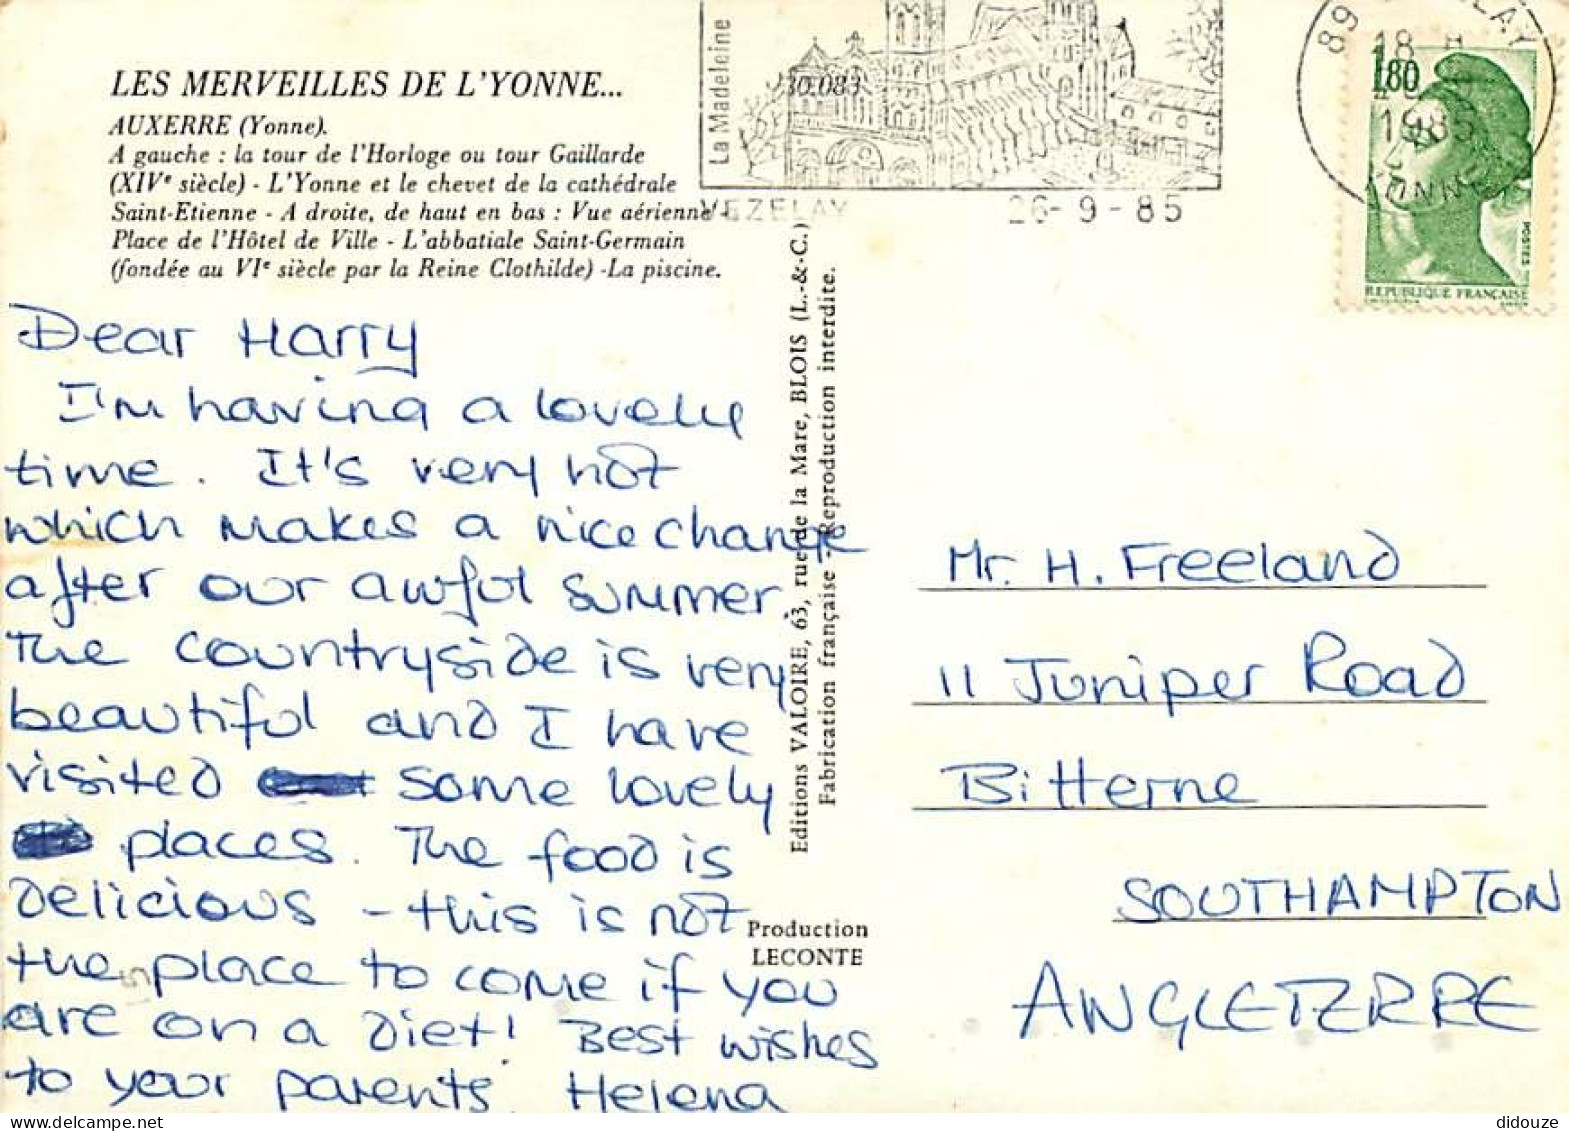 LES MERVEILLES DE L'YONNE...
AUXERRE (Yonne).
A gauche : la tour de l'Horloge ou tour Gaillarde
(XIVe siècle) - L'Yonne et le chevet de la cathédrale
Saint-Etienne - A droite, de haut en bas : Vue aérienne -
Place de l'Hôtel de Ville - L'abbatiale Saint-Germain
(fondée au VIe siècle par la Reine Clothilde) - La piscine.
30.083
La Madeleine
VEZELAY 26-9-85
89
18 H
1985
YONNE
1,80
POSTES
REPUBLIQUE FRANÇAISE
Dear Harry
I'm having a lovely
time. It's very hot
which makes a nice change
after our awful summer.
The countryside is very
beautiful and I have
visited some lovely
places. The food is
delicious - this is not
the place to come if you
are on a diet! Best wishes
to your parents. Helena
Editions VALOIRE, 63, rue de la Mare, BLOIS (L.-&-C.)
Fabrication française - Reproduction interdite.
Production
LECONTE
Mr. H. Freeland
11 Juniper Road
Bitterne
SOUTHAMPTON
ANGLETERRE
delcampe.net
didouze